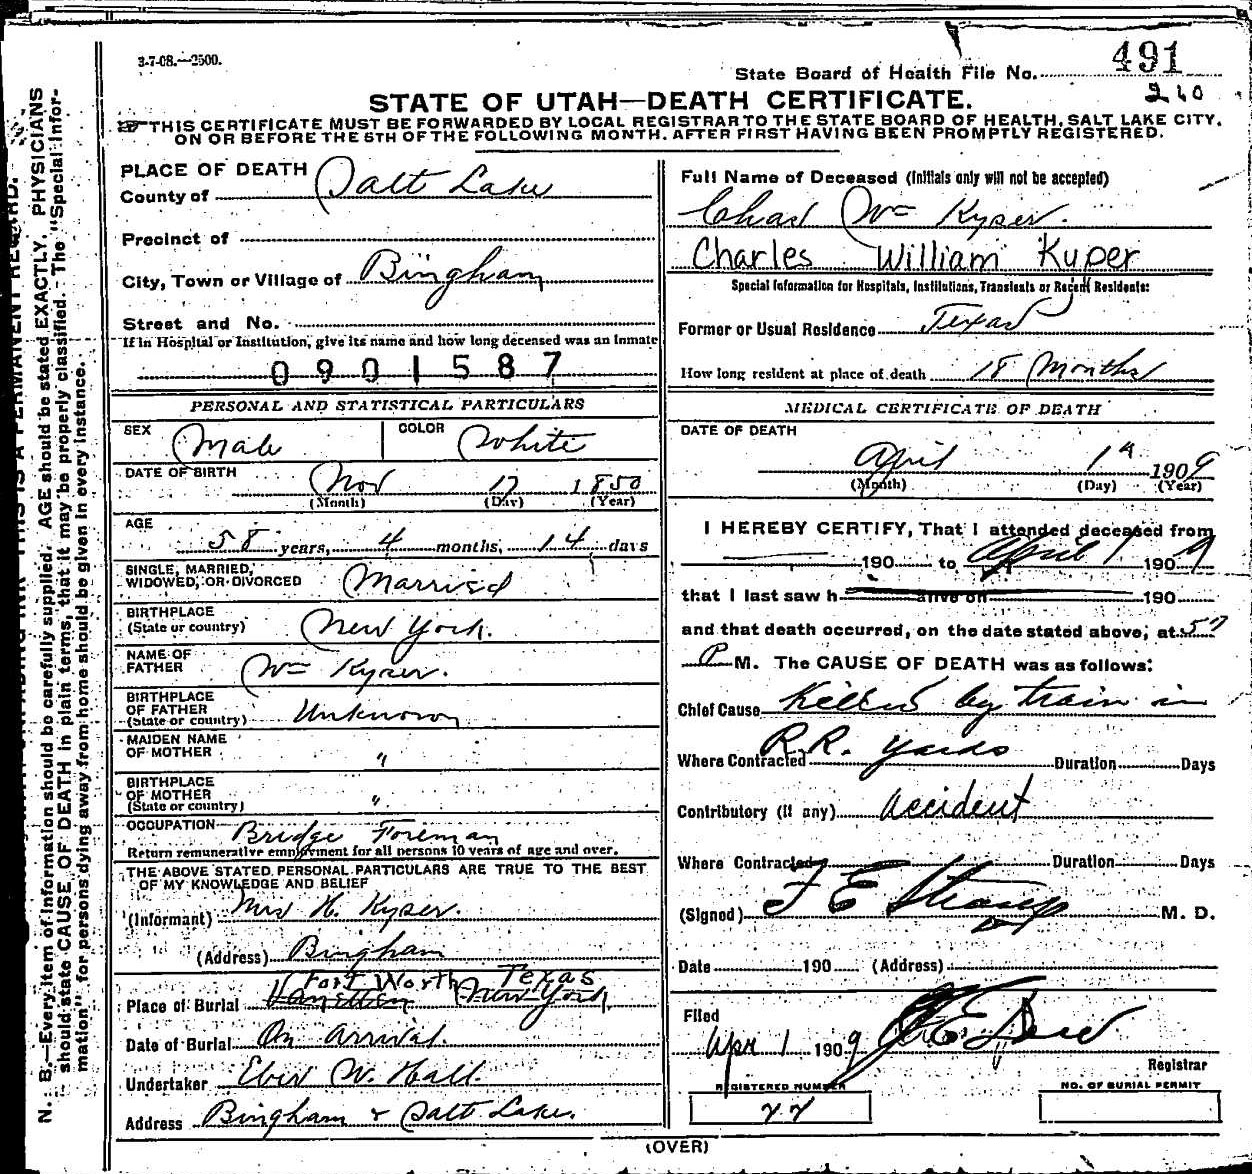 3-7-08.—2500.
State Board of Health File No. 491
210
STATE OF UTAH—DEATH CERTIFICATE.
THIS CERTIFICATE MUST BE FORWARDED BY LOCAL REGISTRAR TO THE STATE BOARD OF HEALTH, SALT LAKE CITY,
ON OR BEFORE THE 5TH OF THE FOLLOWING MONTH, AFTER FIRST HAVING BEEN PROMPTLY REGISTERED.
PLACE OF DEATH
County of Salt Lake
Precinct of
City, Town or Village of Bingham
Street and No.
If in Hospital or Institution, give its name and how long deceased was an inmate
0901587
PERSONAL AND STATISTICAL PARTICULARS
SEX Male COLOR White
DATE OF BIRTH Nov 17 1850
(Month) (Day) (Year)
AGE
58 years, 4 months, 14 days
SINGLE, MARRIED,
WIDOWED, OR DIVORCED Married
BIRTHPLACE
(State or country) New York.
NAME OF
FATHER Wm Kyser.
BIRTHPLACE
OF FATHER
(State or country) Unknown
MAIDEN NAME
OF MOTHER "
BIRTHPLACE
OF MOTHER
(State or country) "
OCCUPATION Bridge Foreman
Return remunerative employment for all persons 10 years of age and over.
THE ABOVE STATED PERSONAL PARTICULARS ARE TRUE TO THE BEST
OF MY KNOWLEDGE AND BELIEF
(Informant) Mrs H. Kyser.
(Address) Bingham
Fort Worth Texas
Place of Burial Vanetten New York
Date of Burial On arrival.
Undertaker Eber W. Hall.
Address Bingham & Salt Lake.
Full Name of Deceased (Initials only will not be accepted)
Chas Wm Kyser.
Charles William Kyper
Special Information for Hospitals, Institutions, Transients or Recent Residents:
Former or Usual Residence Texas
How long resident at place of death 18 Months
MEDICAL CERTIFICATE OF DEATH
DATE OF DEATH
April 1st 1909
(Month) (Day) (Year)
I HEREBY CERTIFY, That I attended deceased from
190 to April 1 1909
that I last saw h alive on 190
and that death occurred, on the date stated above, at 5
P M. The CAUSE OF DEATH was as follows:
Chief Cause Killed by train in
R.R. yards
Where Contracted Duration Days
Contributory (if any) accident
Where Contracted Duration Days
(Signed) F E Straup M. D.
Date 190 (Address)
Filed
Apr 1 1909
Registrar
REGISTERED NUMBER
77
NO. OF BURIAL PERMIT
(OVER)
N. B.—Every item of information should be carefully supplied. AGE should be stated EXACTLY. PHYSICIANS
should state CAUSE OF DEATH in plain terms, that it may be properly classified. The "Special Infor-
mation" for persons dying away from home should be given in every instance.
THIS IS A PERMANENT RECORD.